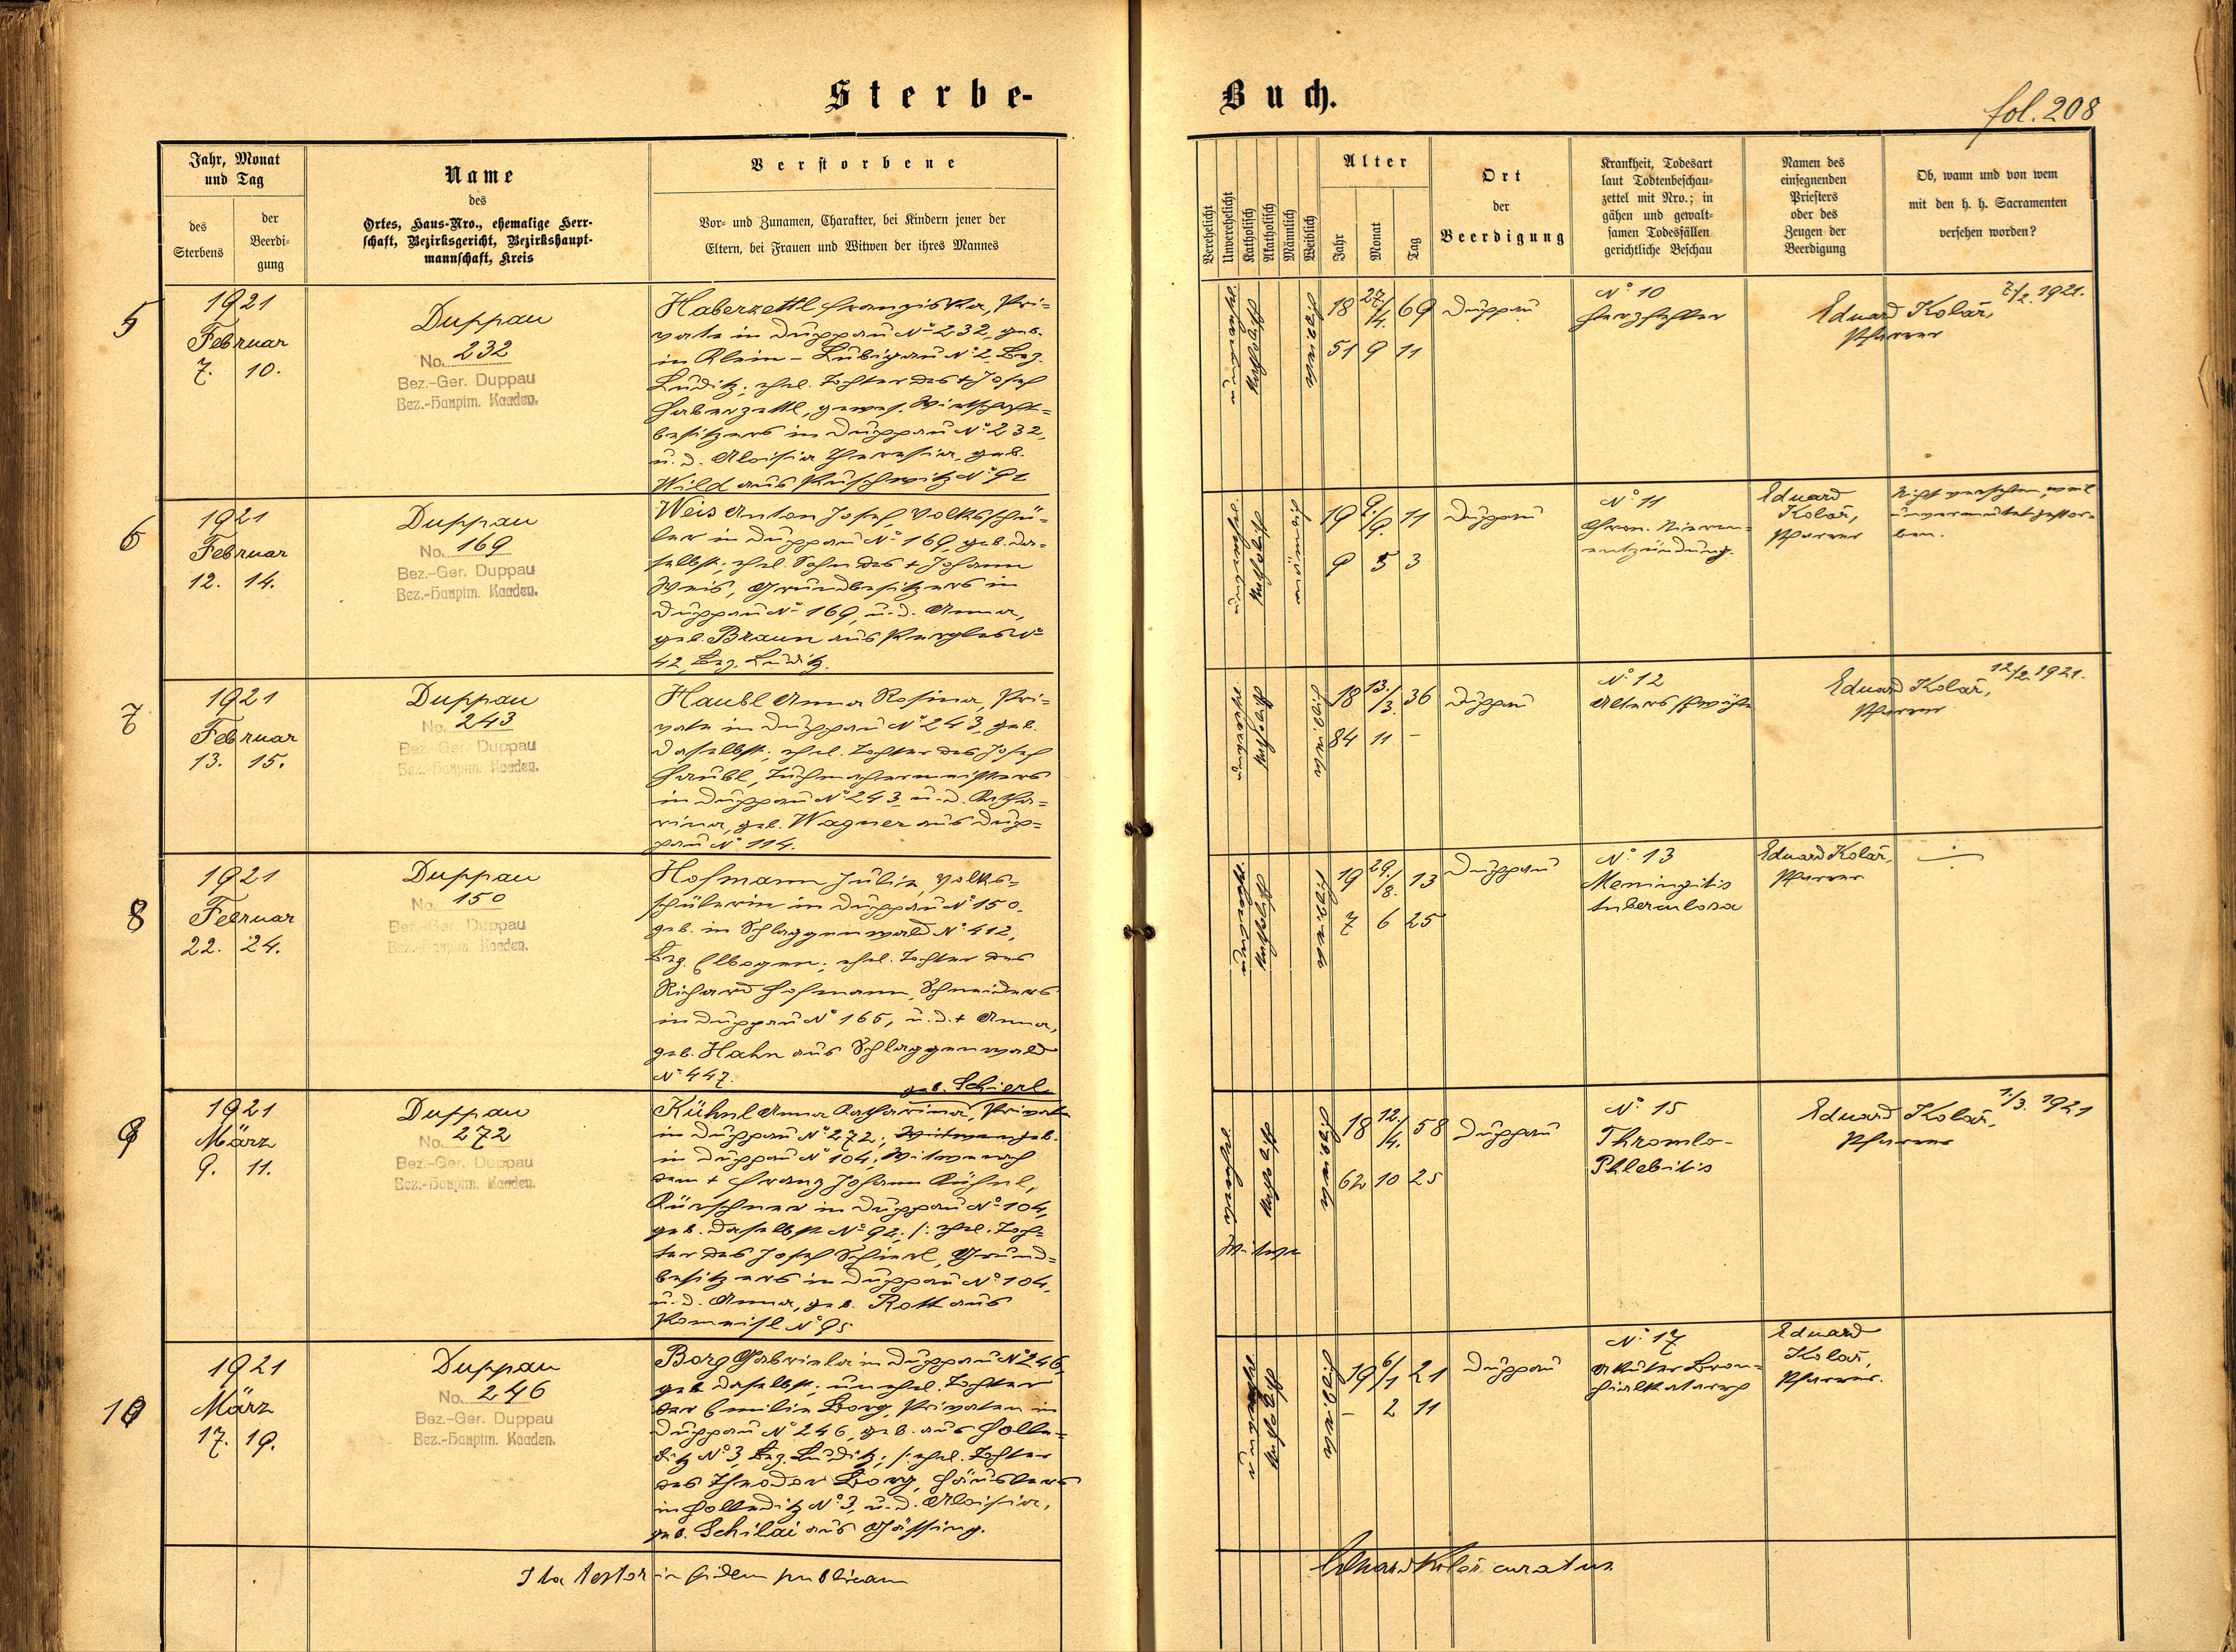 Sterbe-
Buch.
fol. 208
Jahr, Monat
und Tag
des
Sterbens
der
Beerdi-
gung
Name
des
Ortes, Haus-Nro., ehemalige Herr-
schaft, Bezirksgericht, Bezirkshaupt-
mannschaft, Kreis
Verstorbene
Vor- und Zunamen, Charakter, bei Kindern jener der
Eltern, bei Frauen und Witwen der ihres Mannes
Verehelicht
Unverehelicht
Katholisch
Akatholisch
Männlich
Weiblich
Alter
Jahr
Monat
Tag
Ort
der
Beerdigung
Krankheit, Todesart
laut Todtenbeschau-
zettel mit Nro.; in
gähen und gewalt-
samen Todesfällen
gerichtliche Beschau
Namen des
einsegnenden
Priesters
oder des
Zeugen der
Beerdigung
Ob, wann und von wem
mit den h. h. Sacramenten
versehen worden?
5
1921
Februar
7. 10.
Duppau
No. 232
Bez.-Ger. Duppau
Bez.-Hauptm. Kaaden.
Haberzettl Franziska, Pri=
vate in Duppau N° 232, geb.
in Klein-Lubigau N° 2, Bez.
Luditz; ehel. Tochter des + Josef
Haberzettl, gewes. Wirtschaft=
besitzers in Duppau N° 232,
u. d. Aloisia Theresia, geb.
Wild aus Puschwitz N° 91
unverehelicht
Katholisch
weiblich
18 27./4. 69
51 9 11
Duppau
N° 10
Herzfehler
Eduard Kolář,
Pfarrer
7./2. 1921.
6
1921
Februar
12. 14.
Duppau
No. 169
Bez.-Ger. Duppau
Bez.-Hauptm. Kaaden.
Weis Anton Josef, Volksschü=
ler in Duppau N° 169, geb. da=
selbst; ehel. Sohn des + Johann
Weis, Grundbesitzers in
Duppau N° 169, u. d. Anna,
geb. Braun aus Pergles N°
42, Bez. Luditz.
unverehelicht
Katholisch
männlich
19 9./9. 11
9 5 3
Duppau
N° 11
Chron. Nieren=
entzündung.
Eduard
Kolář,
Pfarrer
Nicht versehen, weil
unvermutet gestor=
ben.
7
1921
Februar
13. 15.
Duppau
No. 243
Bez.-Ger. Duppau
Bez.-Hauptm. Kaaden.
Haubl Anna Rosina, Pri=
vate in Duppau N° 243, geb.
daselbst; ehel. Tochter des Josef
Haubl, Tuchmachermeisters
in Duppau N° 243, u. d. Katha=
rina, geb. Wagner aus Dup=
pau N° 114.
unverehelicht
Katholisch
weiblich
18 13./3. 36
84 11 -
Duppau
N° 12
Altersschwäche
Eduard Kolář,
Pfarrer
12./2. 1921.
8
1921
Februar
22. 24.
Duppau
No. 150
Bez.-Ger. Duppau
Bez.-Hauptm. Kaaden.
Hofmann Julie, Volks=
schülerin in Duppau N° 150,
geb. in Schlaggenwald N° 412,
Bez. Elbogen; ehel. Tochter des
Richard Hofmann, Schneiders
in Duppau N° 165, u. d. + Anna,
geb. Hahn aus Schlaggenwald
N° 447.
unverehelicht
Katholisch
weiblich
19 29./8. 13
7 6 25
Duppau
N° 13
Meningitis
tuberculosa
Eduard Kolář,
Pfarrer
9
1921
März
9. 11.
Duppau
No. 272
Bez.-Ger. Duppau
Bez.-Hauptm. Kaaden.
geb. Schierl
Kühnl Anna Katharina, Private
in Duppau N° 272; Witwe geb.
in Duppau N° 104; Witwe nach
dem + Franz Johann Kühnl,
Kürschner in Duppau N° 104,
geb. daselbst N° 92; /: ehel. Toch=
ter des Josef Schierl, Grund=
besitzers in Duppau N° 104,
u. d. Anna, geb. Rott aus
Pomeisl N° 95
verehelicht
Witwe
Katholisch
weiblich
18 12./4. 58
62 10 25
Duppau
N° 15
Thrombo-
Phlebitis
Eduard Kolář,
Pfarrer
1./3. 1921
10
1921
März
17. 19.
Duppau
No. 246
Bez.-Ger. Duppau
Bez.-Hauptm. Kaaden.
Borg Gabriela in Duppau N° 246,
geb. daselbst; unehel. Tochter
der Emilie Borg, Privaten in
Duppau N° 246, geb. aus Holle=
ditz N° 3, Bez. Luditz; /: ehel. Tochter
des Theodor Borg, Häuslers
in Holleditz N° 3, u. d. Aloisia,
geb. Schilai aus Gässing.
unverehelicht
Katholisch
weiblich
19 6/1 21
- 2 11
Duppau
N° 17
Akuter Bron=
chialkatarrh
Eduard
Kolář,
Pfarrer.
Ita testor in fidem publicam
Eduard Kolář curatus